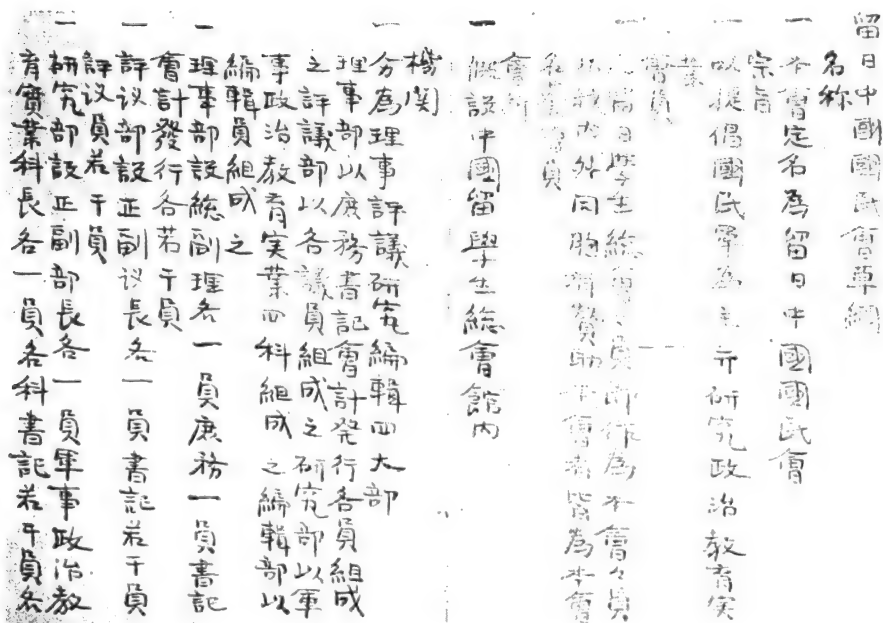 留日中國國民會草綱
名称
一 本會定名為留日中國國民會
宗旨
一 以提倡國民軍為主并研究政治教育实
業
會員
一 留日學生總會々員即作為本會々員
海内外同胞贊助本會者皆為本會
名譽會員
會所
一 假設中國留學生總會館内
機関
一 分為理事評議研究編輯四大部
理事部以庶務書記會計発行各員組成
之評議部以各議員組成之研究部以軍
事政治教育実業四科組成之編輯部以
編輯員組成之
一 理事部設総副理各一員庶務一員書記
會計發行各若干員
一 評议部設正副议長各一員書記若干員
評议員若干員
一 研究部設正副部長各一員軍事政治教
育實業科長各一員各科書記若干員各